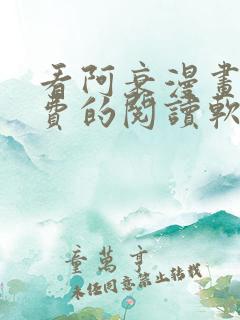 看阿衰漫畫
費的閱讀軟
童萬亨
未經同意禁止轉載